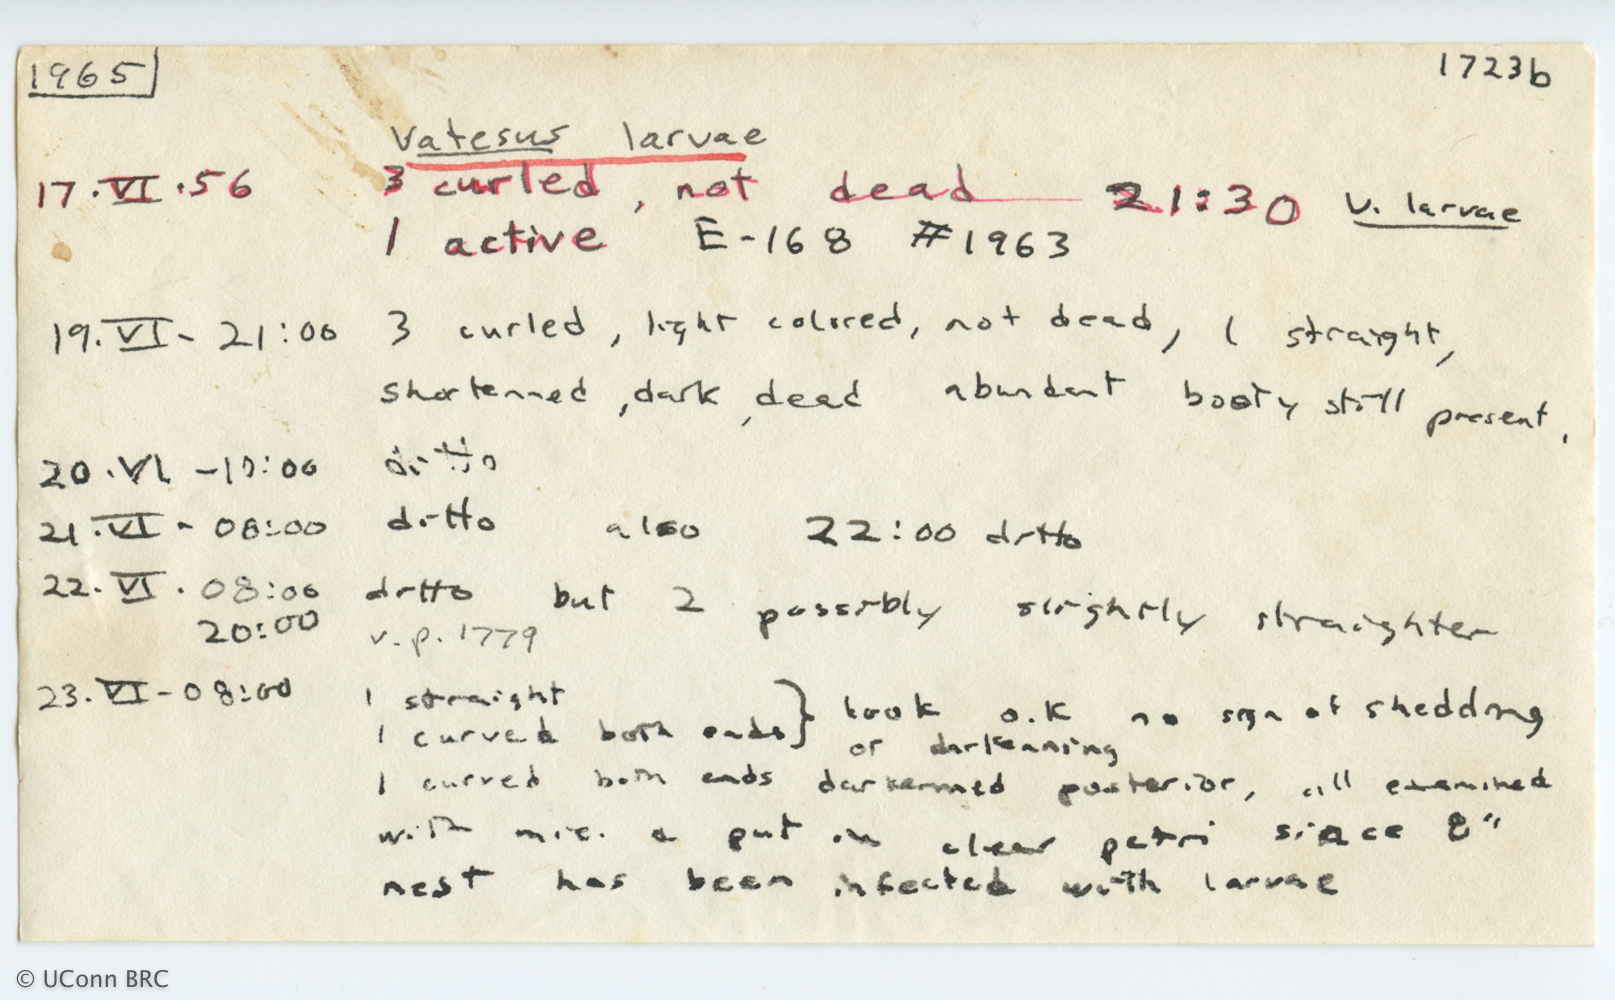 1965 1723b
Vatesus larvae
17.VI.56 3 curled, not dead 21:30 V. larvae
1 active E-168 #1963
19.VI- 21:00 3 curled, light colored, not dead, 1 straight,
shortenned, dark, dead abundant booty still present.
20.VI - ditto
21.VI - 08:00 ditto also 22:00 ditto
22.VI. 08:00 ditto but 2 possibly slightly straighter
20:00 v.p. 1779
23.VI-08:00 1 straight
1 curved both ends } look o.k no sign of shedding
or darkenning
1 curved both ends darkenned posterior, all examined
with mic. & put in clear petri since 8"
nest has been infected with larvae
© UConn BRC